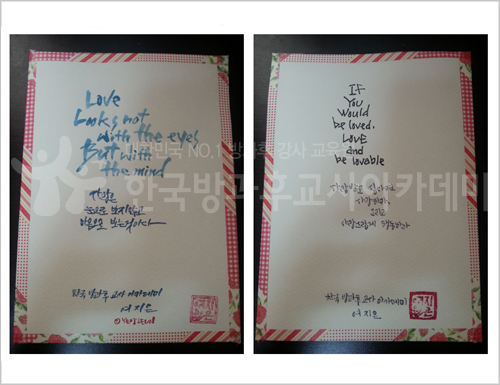 Love
Looks not
with the eyes
But with
the mind
사랑은
눈으로 보지않고
마음으로 보는것이다
한국 방과후 교사 아카데미
여지은
IF
You
Would
be loved,
LovE
and
be lovable
사랑받고 싶다면
사랑하라
그리고
사랑스럽게 행동하라
한국 방과후 교사 아카데미
여지은
대한민국 NO.1 방과후강사 교육원
한국방과후교사아카데미